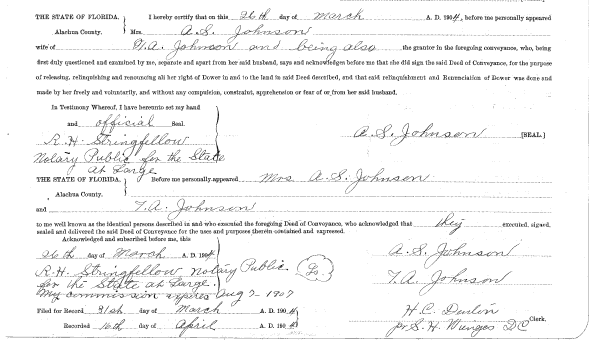 THE STATE OF FLORIDA. I hereby certify that on this 26th day of March A. D. 1904, before me personally appeared
Alachua County. Mrs. A.S. Johnson
wife of T.A. Johnson and being also the grantor in the foregoing conveyance, who, being
first duly questioned and examined by me, separate and apart from her said husband, says and acknowledges before me that she did sign the said Deed of Conveyance, for the purpose
of releasing, relinquishing and renouncing all her right of Dower in and to the land in said Deed described, and that said relinquishment and Renunciation of Dower was done and
made by her freely and voluntarily, and without any compulsion, constraint, apprehension or fear of or from her said husband.
In Testimony Whereof, I have hereunto set my hand
and official Seal.
R.H. Stringfellow A.S. Johnson [SEAL.]
Notary Public for the State
at Large
THE STATE OF FLORIDA. Before me personally appeared Mrs A.S. Johnson
Alachua County.
and T.A. Johnson
to me well known as the identical persons described in and who executed the foregoing Deed of Conveyance, who acknowledged that they executed, signed,
sealed and delivered the said Deed of Conveyance for the uses and purposes therein contained and expressed.
Acknowledged and subscribed before me, this
26th day of March A. D. 1904 A.S. Johnson
R.H. Stringfellow Notary Public
for the State at Large. T.A. Johnson
My commission expires Aug 7 - 1907
Filed for Record 31st day of March A. D. 1904 H.C. Clerk.
Recorded 16th day of April A. D. 1904 per S.H. DC